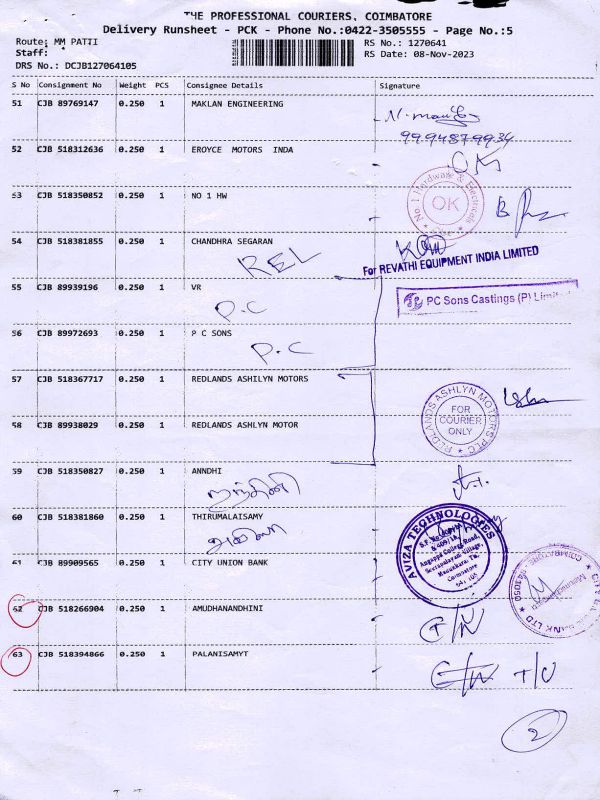 THE PROFESSIONAL COURIERS, COIMBATORE
Delivery Runsheet - PCK - Phone No.:0422-3505555 - Page No.:5
Route: MM PATTI RS No.: 1270641
Staff: RS Date: 08-Nov-2023
DRS No.: DCJB127064105
S No Consignment No Weight PCS Consignee Details Signature
51 CJB 89769147 0.250 1 MAKLAN ENGINEERING
9994879934
52 CJB 518312636 0.250 1 EROYCE MOTORS INDA OK
53 CJB 518350852 0.250 1 NO 1 HW
No.1 Hardware & Electricals
OK
54 CJB 518381855 0.250 1 CHANDHRA SEGARAN
REL
For REVATHI EQUIPMENT INDIA LIMITED
55 CJB 89939196 0.250 1 VR
P.C
PC Sons Castings (P) Limited
56 CJB 89972693 0.250 1 P C SONS
P.C
57 CJB 518367717 0.250 1 REDLANDS ASHILYN MOTORS
REDLANDS ASHLYN MOTORS PLC
FOR
COURIER
ONLY
58 CJB 89938029 0.250 1 REDLANDS ASHLYN MOTOR
59 CJB 518350827 0.250 1 ANNDHI
60 CJB 518381860 0.250 1 THIRUMALAISAMY
AVIZA TECHNOLOGIES
Coimbatore
61 CJB 89909565 0.250 1 CITY UNION BANK
62 CJB 518266904 0.250 1 AMUDHANANDHINI
63 CJB 518394866 0.250 1 PALANISAMYT
2